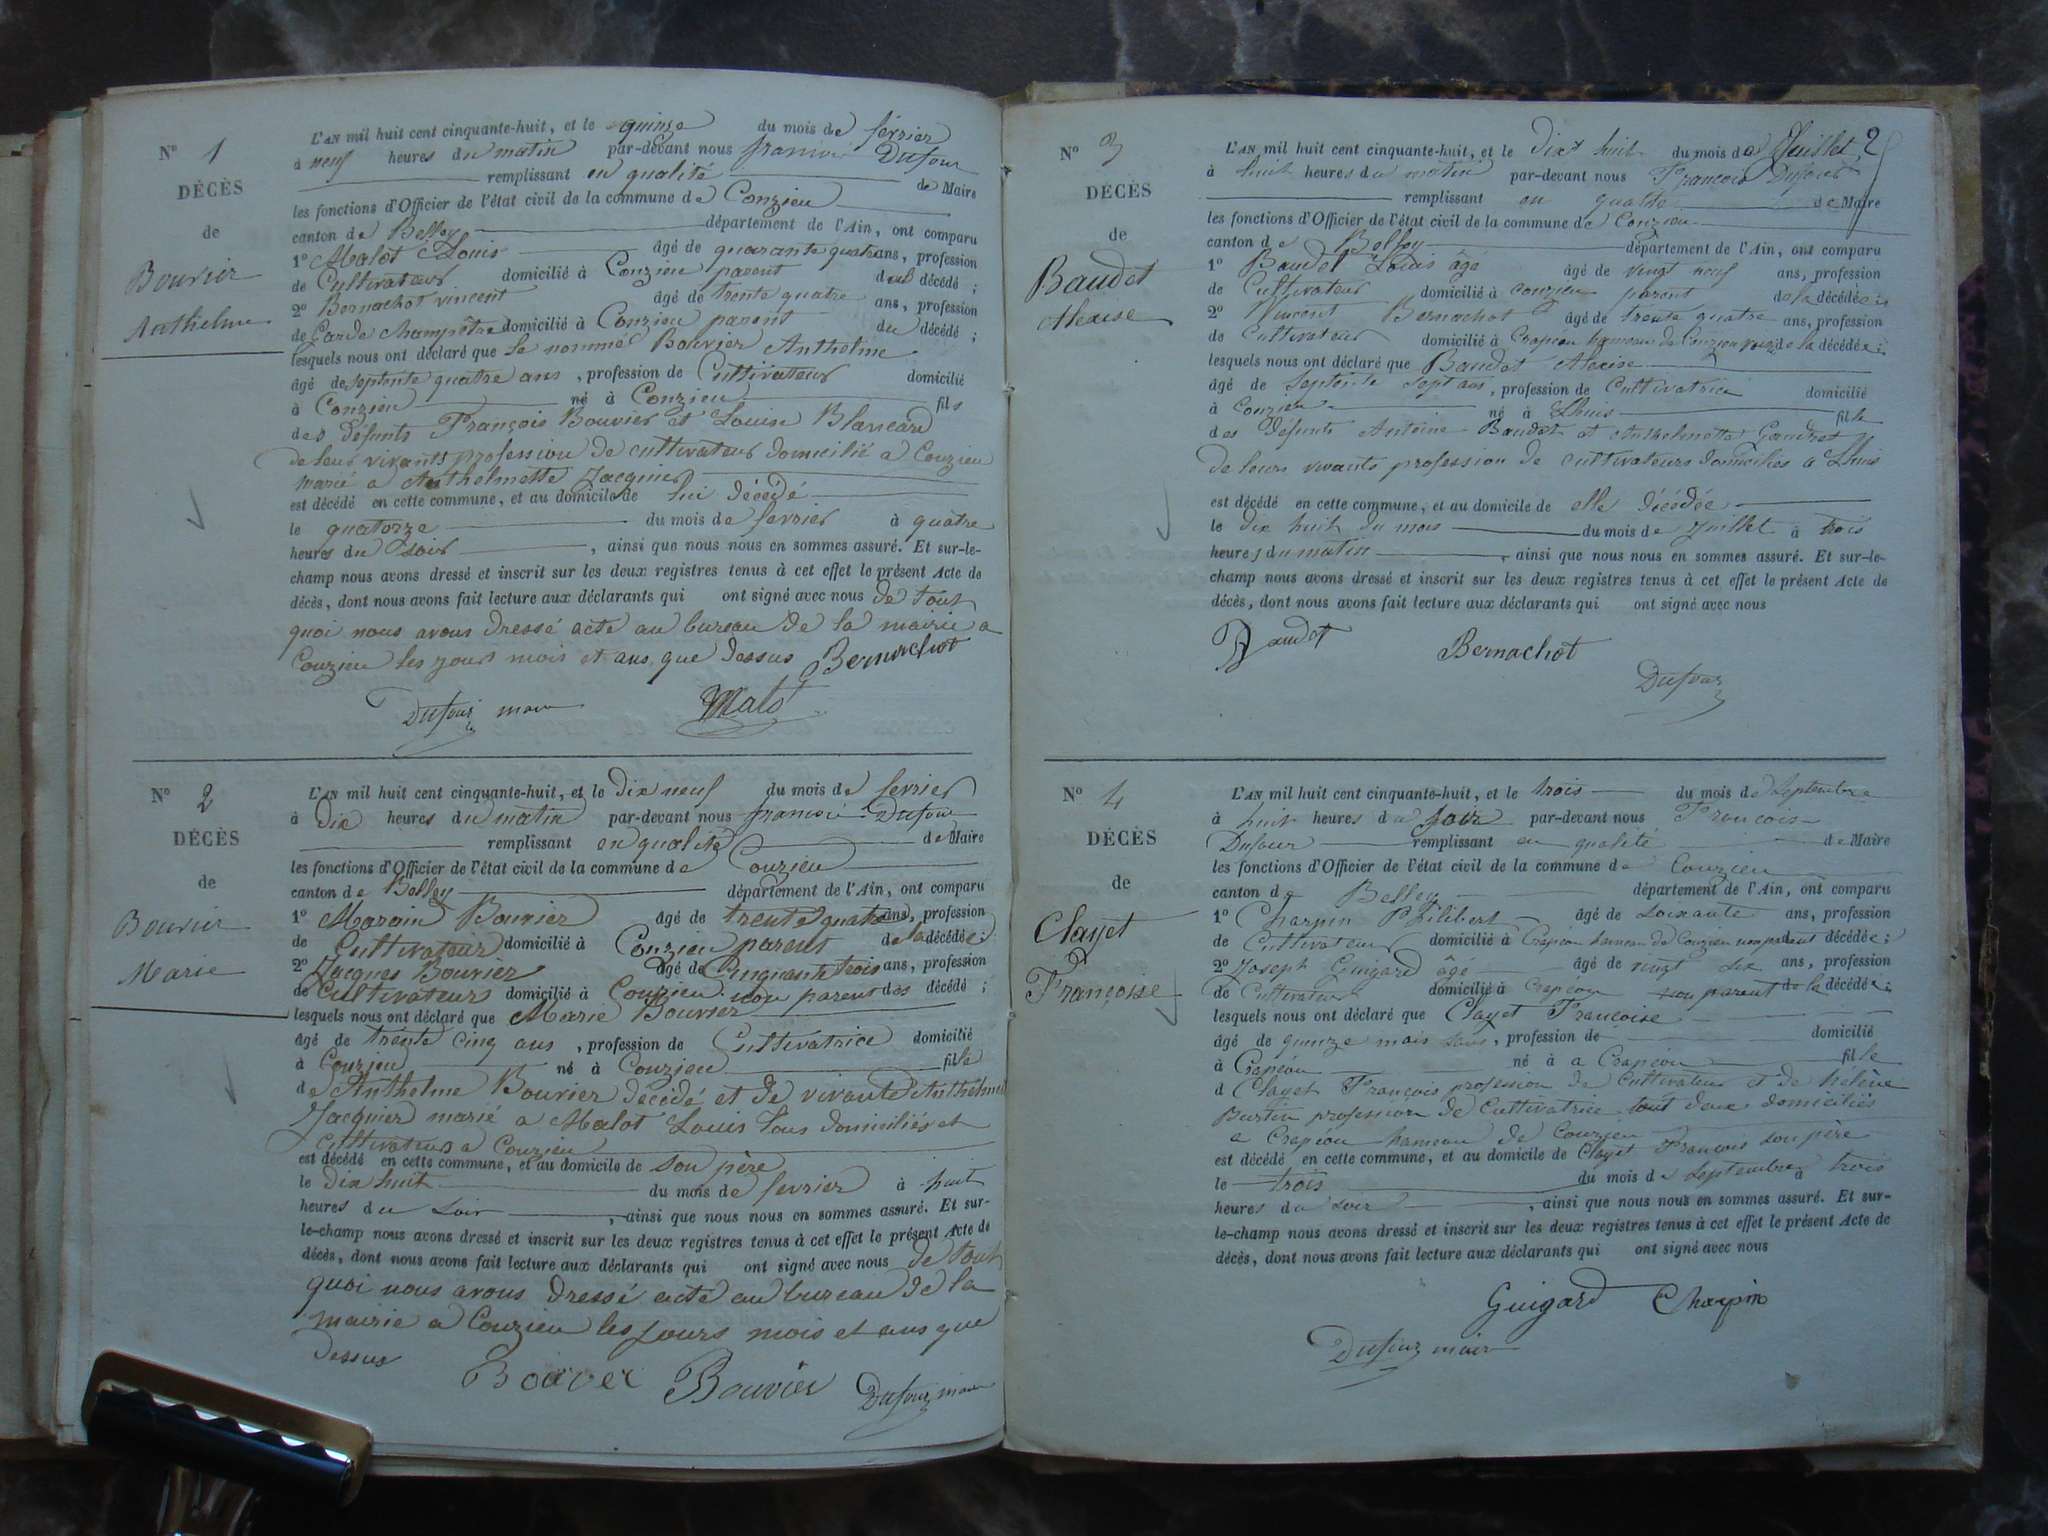 N° 1
DÉCÈS
de
Bouvier
Anthelme
L'AN mil huit cent cinquante-huit, et le quinze du mois de février
à neuf heures du matin par-devant nous françois Dufour
remplissant en qualité de Maire
les fonctions d'Officier de l'état civil de la commune de Conzieu
canton de Belley département de l'Ain, ont comparu
1° Malot Louis âgé de quarante quatre ans, profession
de Cultivateur domicilié à Conzieu parent du décédé ;
2° Bernachot vincent âgé de trente quatre ans, profession
de Garde champêtre domicilié à Conzieu parent du décédé ;
lesquels nous ont déclaré que le nommé Bouvier Anthelme
âgé de septente quatre ans, profession de Cultivateur domicilié
à Conzieu né à Conzieu fils
des défunts François Bouvier et Louise Blancard
de leur vivants profession de cultivateur domicilié a Conzieu
marié a Anthelmette Jacquier
est décédé en cette commune, et au domicile de lui décédé
le quatorze du mois de fevrier à quatre
heures du soir, ainsi que nous nous en sommes assuré. Et sur-le-
champ nous avons dressé et inscrit sur les deux registres tenus à cet effet le présent Acte de
décès, dont nous avons fait lecture aux déclarants qui ont signé avec nous de tout
quoi nous avons dressé acte au bureau de la mairie a
Conzieu les jours mois et ans que dessus Bernachot
Dufour maire Malot
N° 2
DÉCÈS
de
Bouvier
Marie
L'AN mil huit cent cinquante-huit, et le dix neuf du mois de fevrier
à Dix heures du matin par-devant nous françois Dufour
remplissant en qualité de Maire
les fonctions d'Officier de l'état civil de la commune de Conzieu
canton de Belley département de l'Ain, ont comparu
1° Marain Bouvier âgé de trente quatre ans, profession
de Cultivateur domicilié à Conzieu parent de la décédée ;
2° Jacques Bouvier âgé de Cinquante trois ans, profession
de Cultivateur domicilié à Conzieu non parent des décédé ;
lesquels nous ont déclaré que Marie Bouvier
âgé de trente cinq ans, profession de Cultivatrice domicilié
à Conzieu né à Conzieu fille
de Anthelme Bouvier décédé et de vivante Anthelme
Jacquier marié a Malot Louis tous domiciliés et
cultivateurs a Conzieu
est décédé en cette commune, et au domicile de son père
le dix huit du mois de fevrier à huit
heures du soir, ainsi que nous nous en sommes assuré. Et sur-
le-champ nous avons dressé et inscrit sur les deux registres tenus à cet effet le présent Acte de
décès, dont nous avons fait lecture aux déclarants qui ont signé avec nous de tout
quoi nous avons dressé acte au bureau de la
mairie a Conzieu les jours mois et ans que
dessus Bouvier Bouvier Dufour maire
N° 3
DÉCÈS
de
Baudet
Alexise
L'AN mil huit cent cinquante-huit, et le Dix huit du mois de Juillet 2
à huit heures du matin par-devant nous François Dufour
remplissant en qualité de Maire
les fonctions d'Officier de l'état civil de la commune de Conzieu
canton de Belley département de l'Ain, ont comparu
1° Baudet Louis âgé âgé de vingt neuf ans, profession
de Cultivateur domicilié à conzieu parent de la décédée ;
2° Vincent Bernachot âgé de trente quatre ans, profession
de Cultivateur domicilié à Crapéou hameau de Conzieu voisin de la décédée ;
lesquels nous ont déclaré que Baudet Alexise
âgé de septente sept ans, profession de Cultivatrice domicilié
à Conzieu né à Lhuis fille
des défunts Antoine Baudet et Anthelmette Gaudret
de leurs vivants profession de cultivateurs domiciliés a Lhuis
est décédé en cette commune, et au domicile de elle décédée
le dix huit du mois du mois de Juillet à trois
heures du matin, ainsi que nous nous en sommes assuré. Et sur-le-
champ nous avons dressé et inscrit sur les deux registres tenus à cet effet le présent Acte de
décès, dont nous avons fait lecture aux déclarants qui ont signé avec nous
Baudet Bernachot
Dufour
N° 4
DÉCÈS
de
Clayet
Françoise
L'AN mil huit cent cinquante-huit, et le trois du mois de Septembre
à huit heures du soir par-devant nous François
Dufour remplissant en qualité de Maire
les fonctions d'Officier de l'état civil de la commune de Conzieu
canton de Belley département de l'Ain, ont comparu
1° Charpin Philibert âgé de soixante ans, profession
de Cultivateur domicilié à Crapéou hameau de Conzieu non parent décédée ;
2° Joseph Guigard âgé âgé de vingt six ans, profession
de Cultivateur domicilié à Crapéou non parent de la décédée ;
lesquels nous ont déclaré que Clayet Françoise
âgé de quinze mois sans, profession de domicilié
à Crapéou né à a Crapéou fille
d Clayet François profession de cultivateur et de hélène
Burtin profession de Cultivatrice tout deux domiciliés
a Crapéou hameau de Conzieu
est décédé en cette commune, et au domicile de Clayet François son père
le trois du mois de septembre à trois
heures du soir, ainsi que nous nous en sommes assuré. Et sur-
le-champ nous avons dressé et inscrit sur les deux registres tenus à cet effet le présent Acte de
décès, dont nous avons fait lecture aux déclarants qui ont signé avec nous
Guigard Charpin
Dufour maire